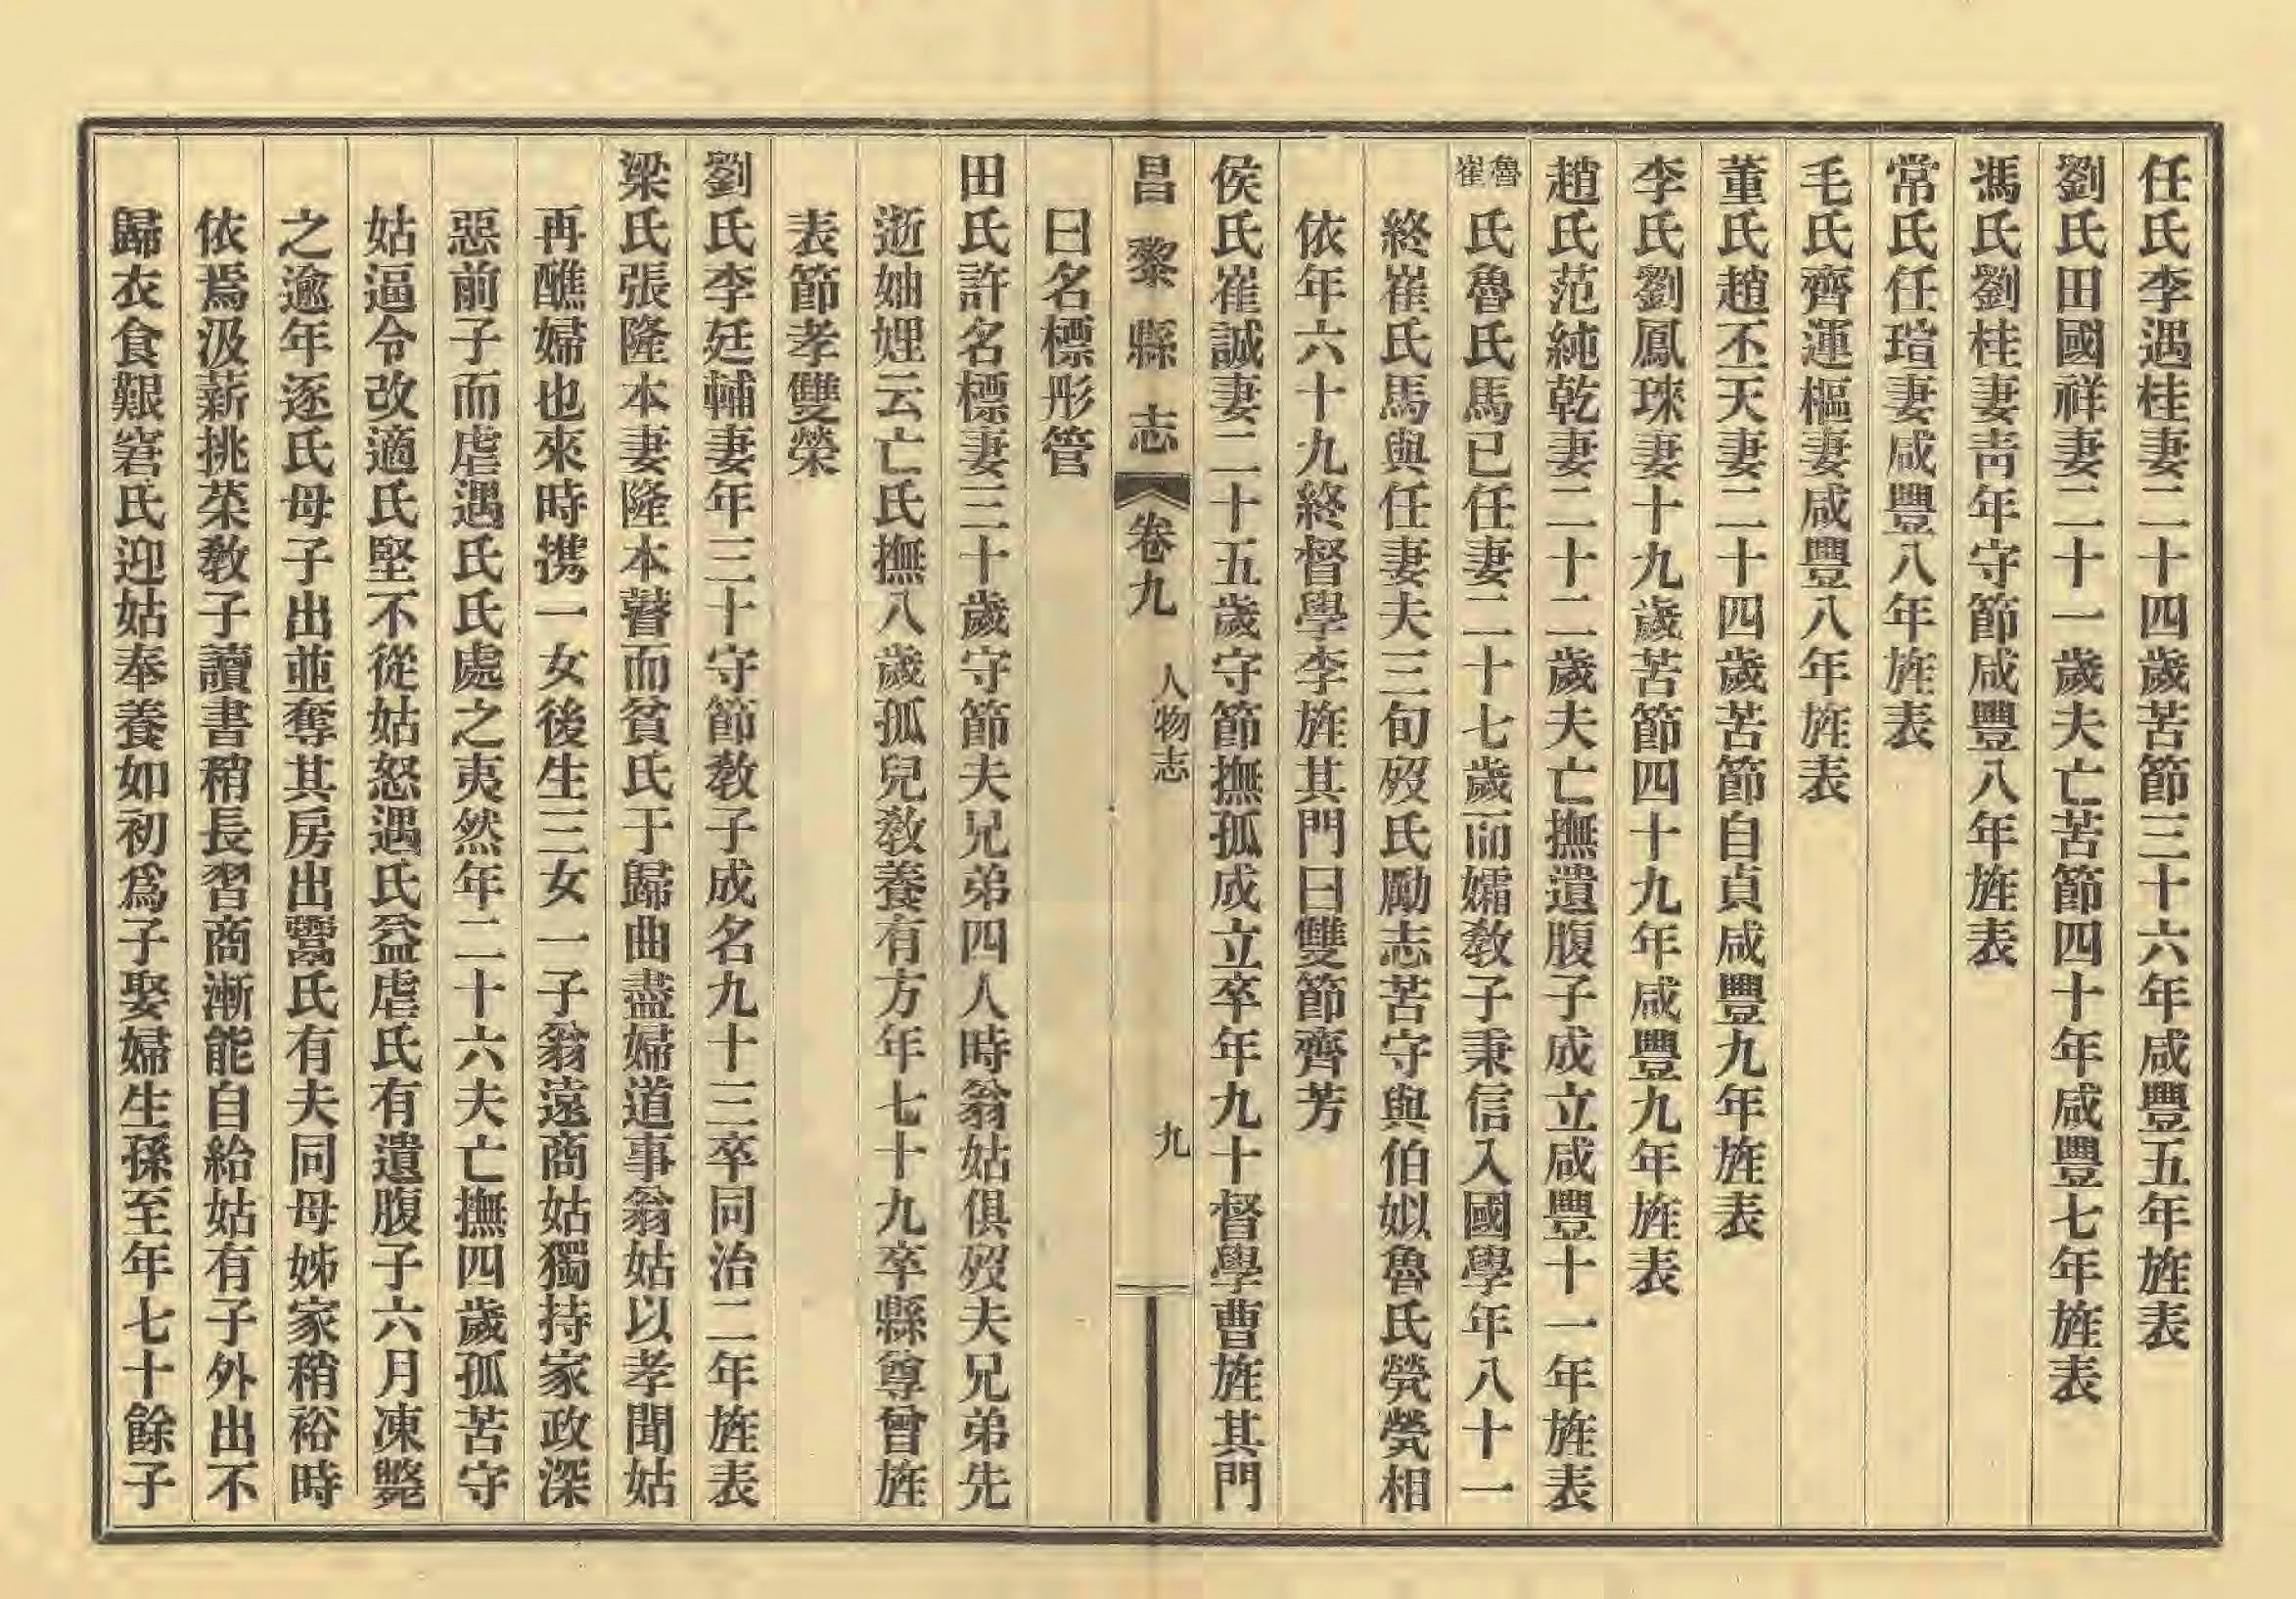 任氏李遇桂妻二十四歲苦節三十六年咸豐五年旌表
劉氏田國祥妻二十一歲夫亡苦節四十年咸豐七年旌表
馮氏劉桂妻靑年守節咸豐八年旌表
常氏任瑄妻咸豐八年旌表
毛氏齊運樞妻咸豐八年旌表
董氏趙不天妻二十四歲苦節自貞咸豐九年旌表
李氏劉鳳琜妻十九歲苦節四十九年咸豐九年旌表
趙氏范純乾妻二十二歲夫亡撫遺腹子成立咸豐十一年旌表
魯崔氏魯氏馬已任妻二十七歲而孀敎子秉信入國學年八十一
終崔氏馬與任妻夫三旬歿氏勵志苦守與伯姒魯氏煢煢相
依年六十九終督學李旌其門曰雙節齊芳
侯氏崔誠妻二十五歲守節撫孤成立卒年九十督學曹旌其門
昌黎縣志 卷九 人物志 九
曰名標彤管
田氏許名標妻三十歲守節夫兄弟四人時翁姑俱歿夫兄弟先
逝妯娌云亡氏撫八歲孤兒敎養有方年七十九卒縣尊曾旌
表節孝雙榮
劉氏李廷輔妻年三十守節敎子成名九十三卒同治二年旌表
梁氏張隆本妻隆本瞽而貧氏于歸曲盡婦道事翁姑以孝聞姑
再醮婦也來時携一女後生三女一子翁遠商姑獨持家政深
惡前子而虐遇氏氏處之夷然年二十六夫亡撫四歲孤苦守
姑逼令改適氏堅不從姑怒遇氏益虐氏有遺腹子六月凍斃
之逾年逐氏母子出並奪其房出鬻氏有夫同母姊家稍裕時
依焉汲薪挑菜敎子讀書稍長習商漸能自給姑有子外出不
歸衣食艱窘氏迎姑奉養如初爲子娶婦生孫至年七十餘子